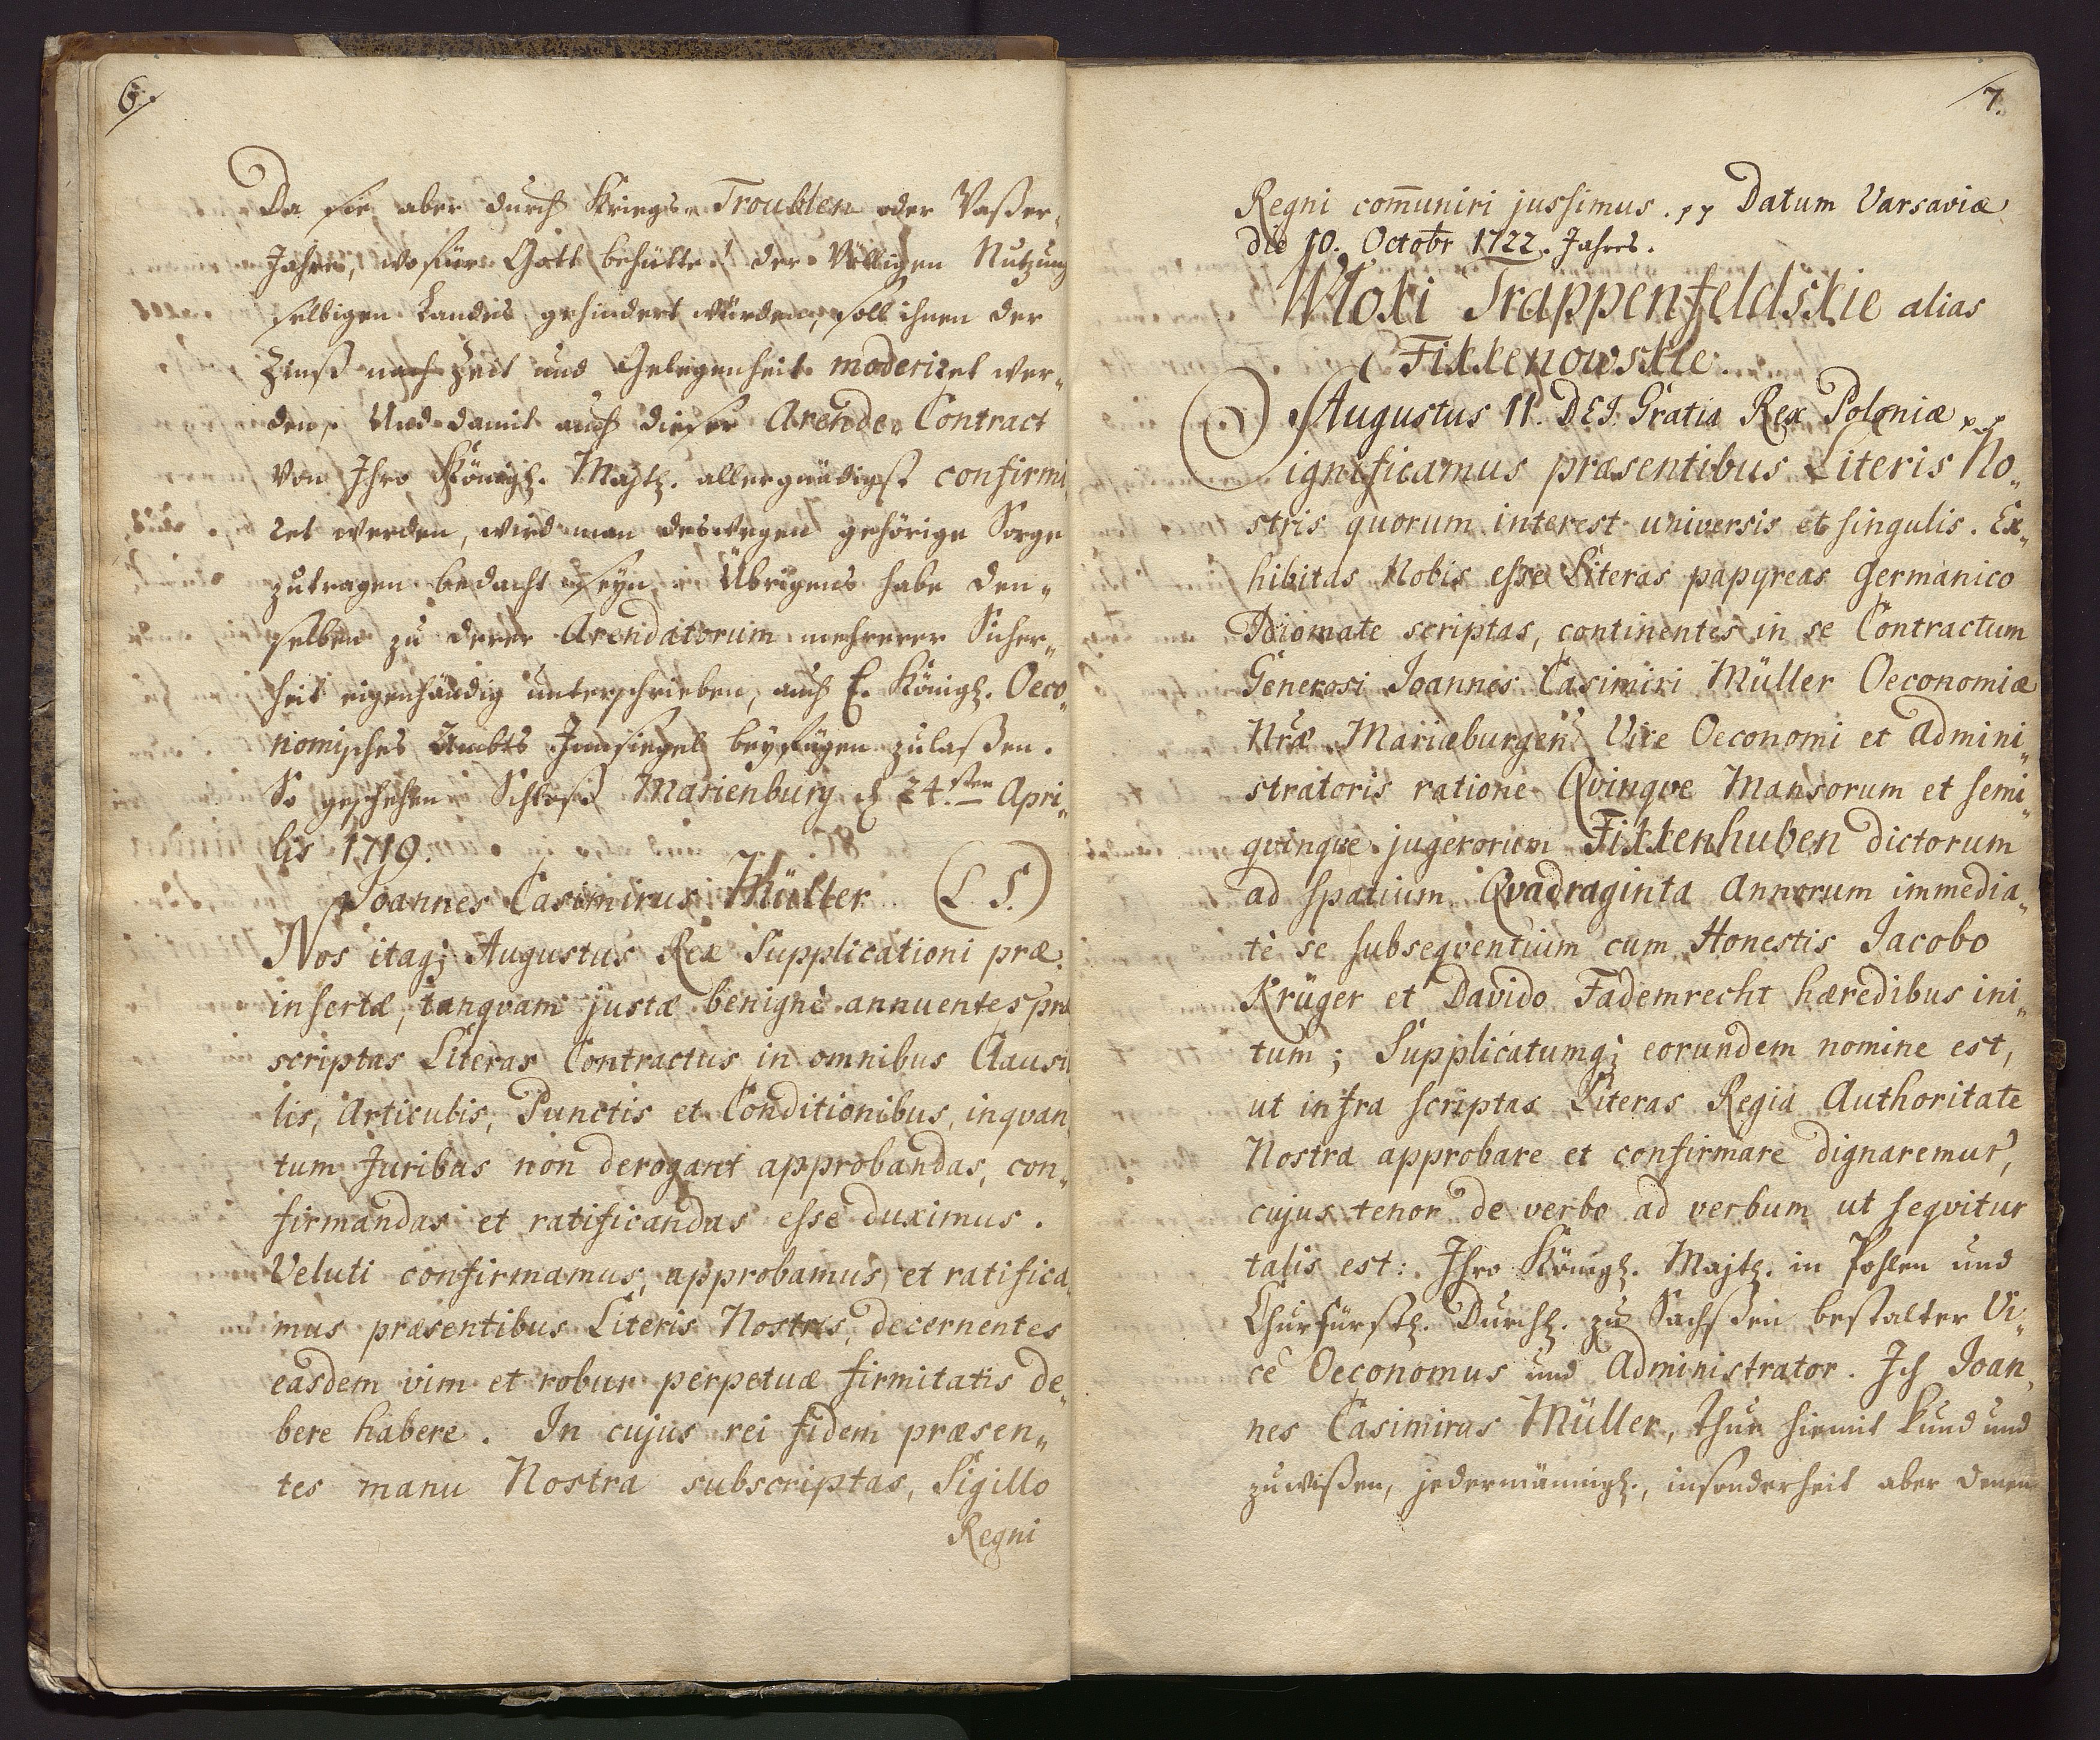 6.
Da sie aber durch Kriegs-Troublen oder Waßer-
Jahre, wofür Gott behütte! der völligen Nutzung
selbigen Landes gehindert würden, soll ihnen der
Zinß nach Zeit und Gelegenheit moderiret wer-
den. Und damit auch dieser Arende Contract
von Ihro Königl. Majtl. allergnädigst confirmi-
ret werden, wird man deswegen gehörige Sorge
zutragen bedacht seyn. Übrigens habe den-
selben zu derer Arendatorum mehrerer Sicher-
heit eigenhändig unterschrieben, auch E. Königl. Oeco-
nomisches Ambts Innsiegel beyfügen zulaßen.
So geschehen Schloß Marienburg d 24.sten Apri-
lis 1719.
Joannes Casimirus Müller (L. S.)
Nos itaq; Augustus Rex Supplicationi præ-
insertæ, tanqvam justæ benignè annuentes præ
scriptas Literas Contractus in omnibus Clausu
lis, Articulis, Punctis et Conditionibus, inqvan
tum Juribus non derogant approbandas, con-
firmandas et ratificandas esse duximus.
Veluti confirmamus, approbamus, et ratifica-
mus præsentibus Literis Nostris, decernentes
easdem vim et robur perpetuæ firmitatis de-
bere habere. In cujus rei fidem præsen-
tes manu Nostra subscriptas, Sigillo
Regni
7.
Regni com̄uniri jussimus. pp Datum Varsaviæ
die 10. Octobr 1722. Jahres.
Włoki Trappenfeldskie alias
Fikkenowskie.
Augustus II. DEI Gratia Rex Poloniæ pp
Significamus præsentibus Literis No-
stris quorum interest universis et singulis. Ex-
hibitas Nobis esse Literas papyreas Germanico
Idiomate scriptas, continentes in se Contractum
Generosi Joannis Casimiri Müller Oeconomiæ
Nræ Mariæburgen Vice Oeconomi et Admini-
stratoris ratione Qvinqve Mansorum et semi-
qvinqve jugerorum Fikkenhuben dictorum
ad spatium Qvadraginta Annorum immedia-
tè se subseqventium cum Honestis Jacobo
Krüger et Davido Fademrecht hæredibus ini-
tum; Supplicatumq; eorundem nomine est,
ut infra scriptas Literas Regia Authoritate
Nostra approbare et confirmare dignaremur,
cujus tenor de verbo ad verbum ut seqvitur
talis est: Ihro Königl. Majtl. in Pohlen und
Churfürstl. Durchl. zu Sachßen bestalter Vi-
ce Oeconomus und Administrator. Ich Joan-
nes Casimirus Müller, thue hiemit kund und
zuwißen, jedermännigl., insonderheit aber denen